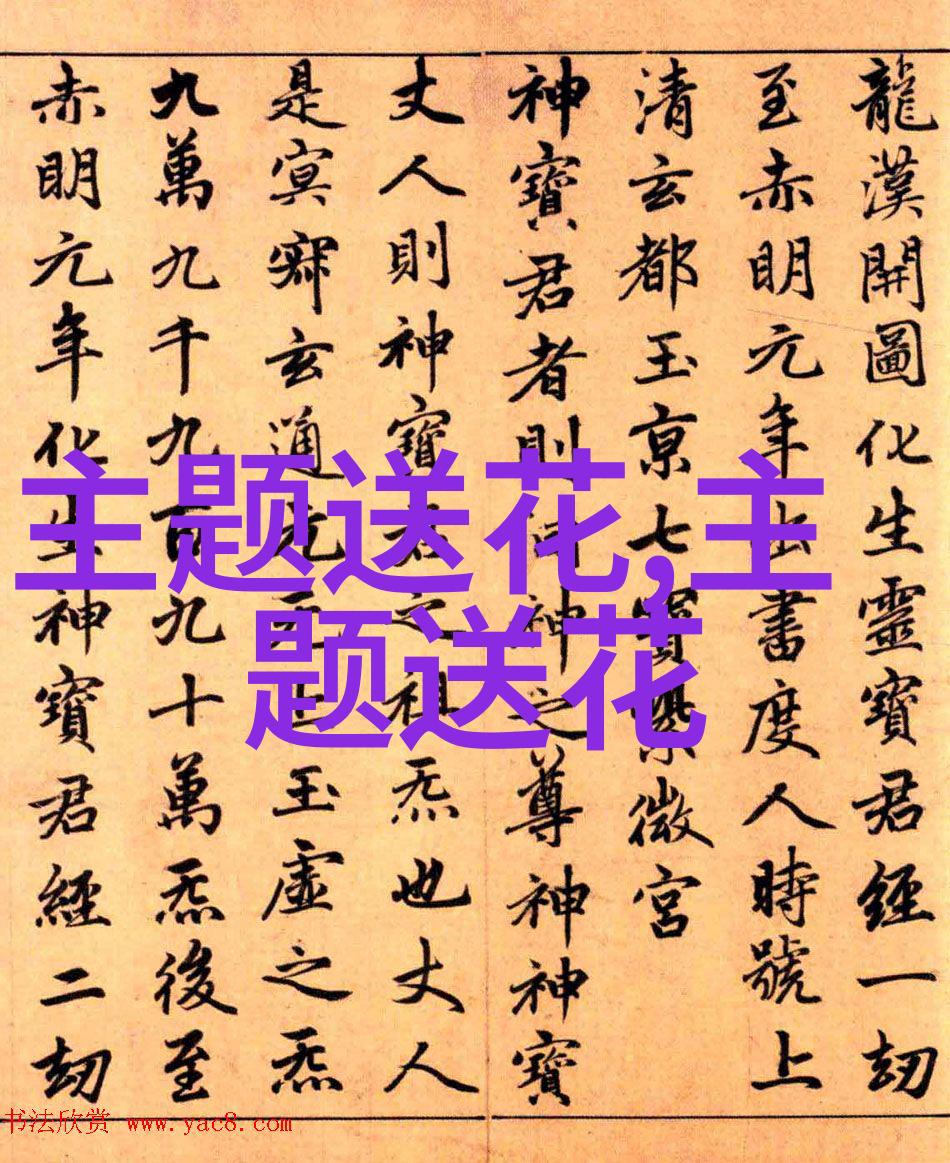 龍漢開圖化生靈寶君經一劫
至赤明元年出書度人時號上
清玄都玉京七寶紫微宮
神寶君者則神神之尊神神寶
丈人則神寶君之祖炁也丈人
是冥寂玄通无上玉虛之炁
九萬九千九百九十萬炁後至
赤明元年化生神寶君經二劫
主题送花,主
题送花
书法欣赏 www.yac8.com